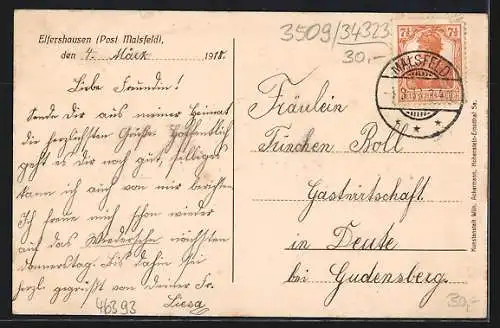 Elfershausen (Post Malsfeld),
den 4. März 1918.
3509/34323
30,-
Liebe Freundin!
Sende Dir aus meiner Heimat
die herzlichsten Grüße. Hoffentlich
geht es Dir noch gut, selbiges
kann ich auch von mir berichten.
Ich freue mich schon wieder
auf das Wiedersehn nächsten
Donnerstag. Bis dahin sei
herzl. gegrüßt von deiner Fr.
46393
7½ 7½
MALSFELD
Fräulein
Trinchen Boll
Gastwirtschaft
in Deute
bei Gudensberg.
30,-
Kunstanstalt Wilh. Ackermann, Hohenstein-Ernstthal Sa.